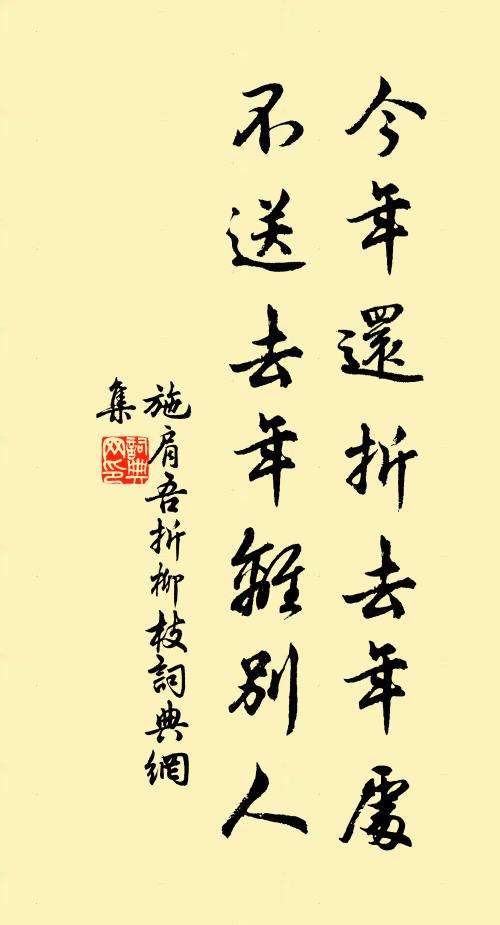 今年還折去年處
不送去年離別人
施肩吾折柳枝詞典網
集
詞典
网印